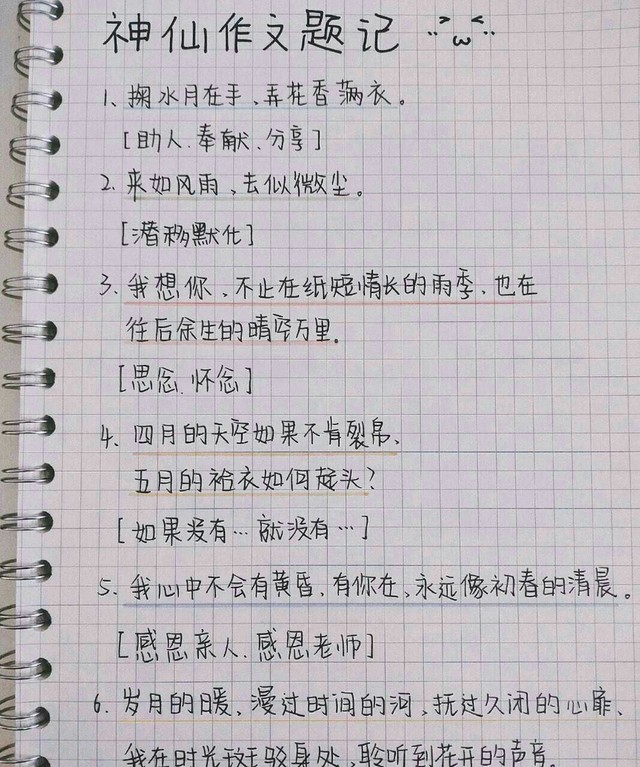 神仙作文题记
1、掬水月在手,弄花香满衣。
[助人.奉献.分享]
2、来如风雨,去似微尘。
[潜移默化]
3、我想你,不止在纸短情长的雨季,也在
往后余生的晴空万里。
[思念.怀念]
4、四月的天空如果不肯裂帛、
五月的袷衣如何起头?
[如果没有…就没有…]
5、我心中不会有黄昏,有你在,永远像初春的清晨。
[感恩亲人.感恩老师]
6、岁月的暖,漫过时间的河,抚过久闭的心扉、
我在时光斑驳身处,聆听到花开的声音。